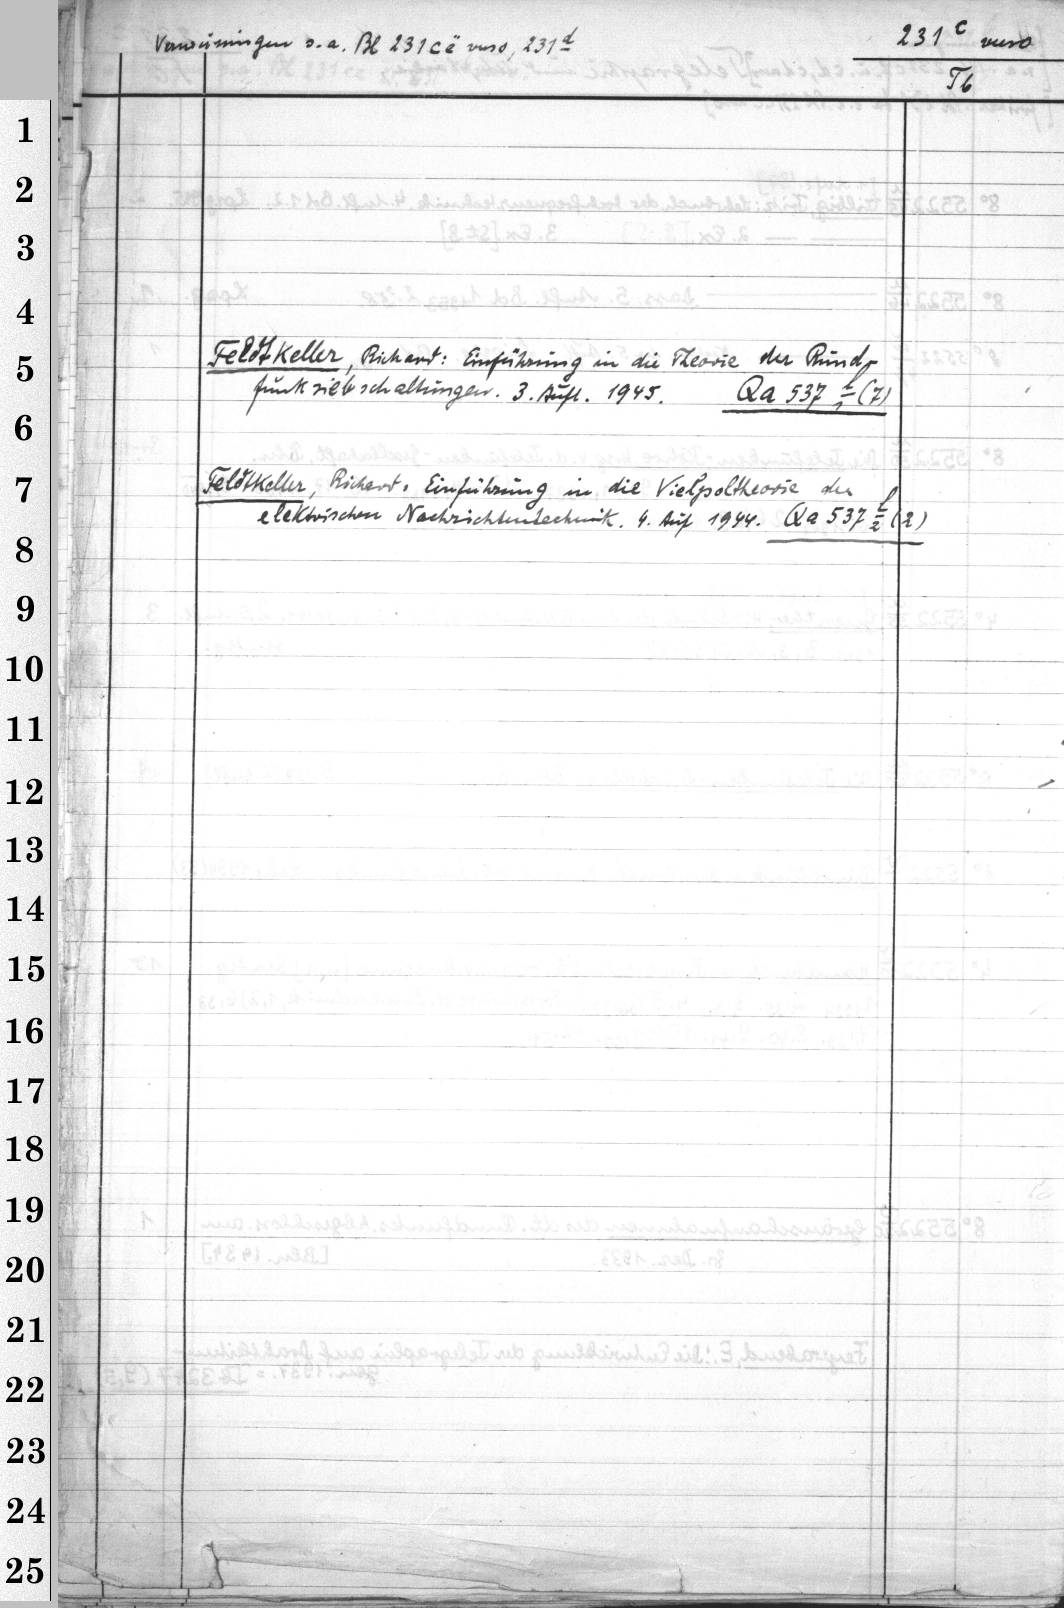 Verweisungen s. a. Bl 231cä verso, 231d
231c verso
Tb
Feldtkeller, Richard: Einführung in die Theorie der Rund-
funksiebschaltungen. 3. Aufl. 1945. Qa 537 (7)
Feldtkeller, Richard: Einführung in die Vierpoltheorie der
elektrischen Nachrichtentechnik. 4. Auf 1944. Qa 537 (2)
1
2
3
4
5
6
7
8
9
10
11
12
13
14
15
16
17
18
19
20
21
22
23
24
25